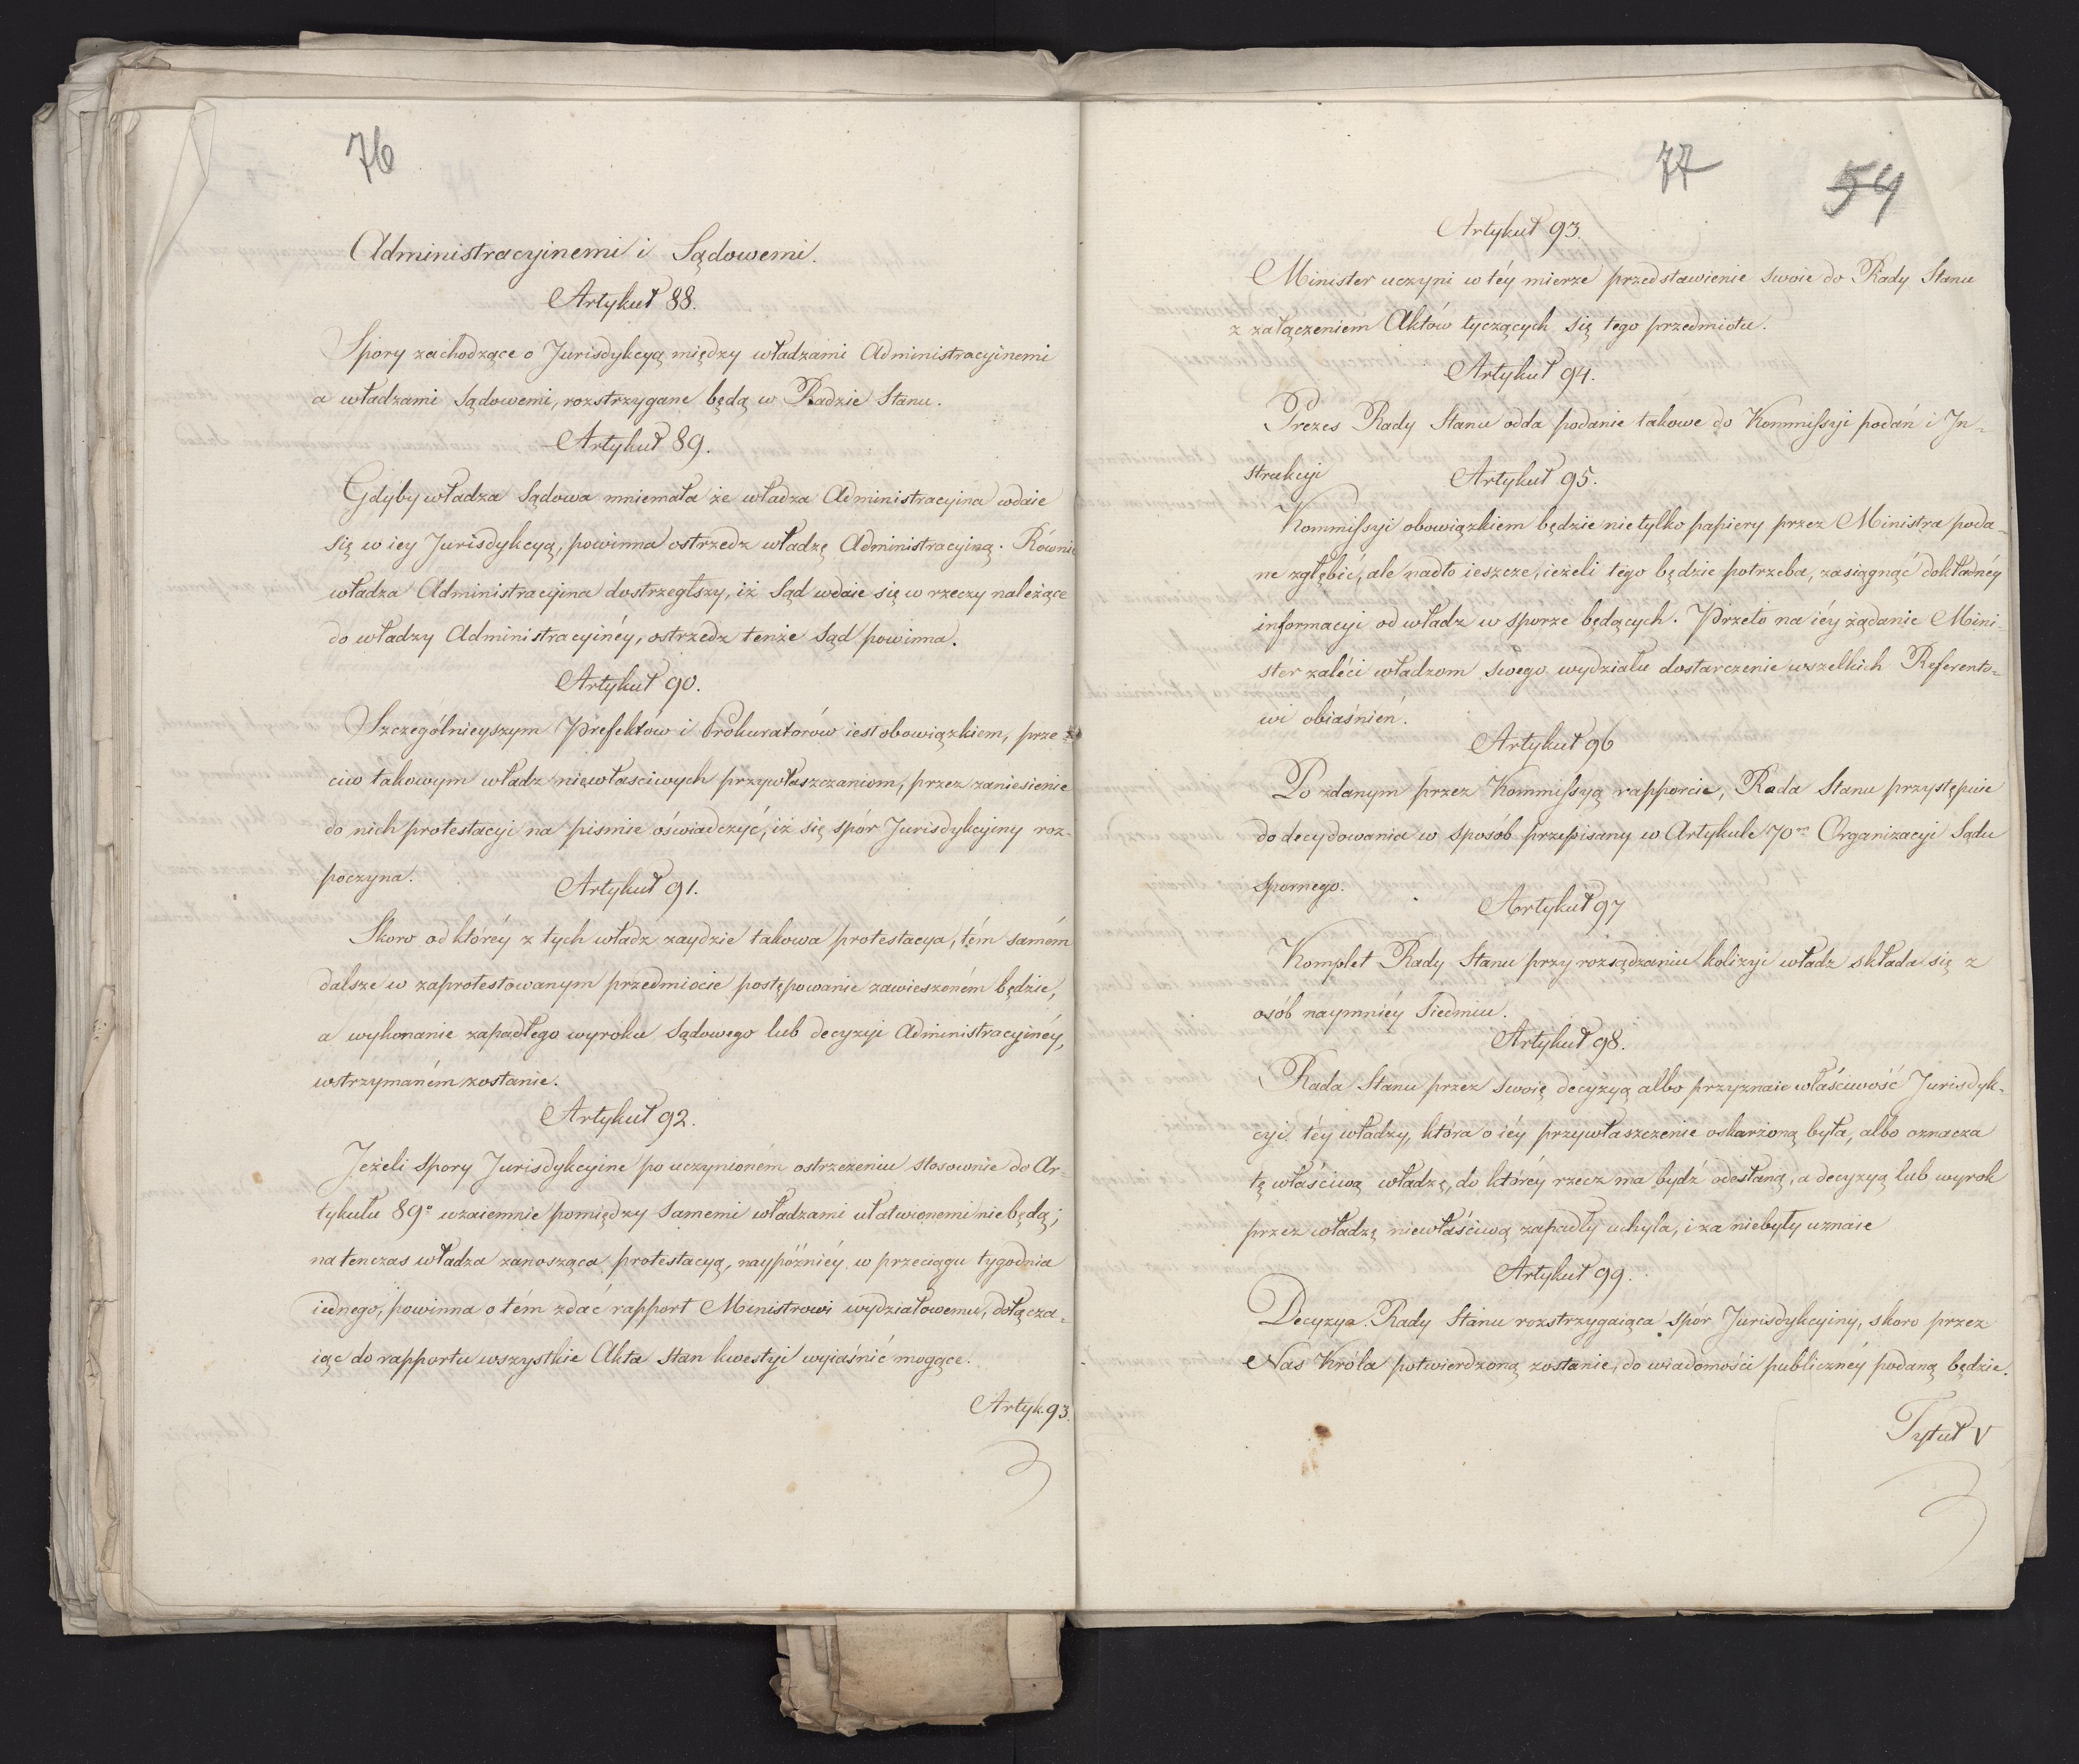 76
Administracyjnemi i Sądowemi.
Artykuł 88.
Spory zachodzące o Jurisdykcyą między władzami Administracyinemi
a władzami Sądowemi, rozstrzygane będą w Radzie Stanu.
Artykuł 89.
Gdyby władza Sądowa mniemała że władza Administracyina wdaie
się w iey Jurisdykcyą, powinna ostrzedz władzę Administracyiną. Równie
władza Administracyina dostrzegłszy, iż Sąd wdaie się w rzeczy należące
do władzy Administracyinéy, ostrzedz tenże Sąd powinna.
Artykuł 90.
Szczególnieyszym Prefektów i Prokuratorów iest obowiązkiem, prze-
ciw takowym władz niewłasciwych przywłaszczaniom, przez zaniesienie
do nich protestacyi na pismie oświadczyć, iż się spór Jurisdykcyiny roz-
poczyna.
Artykuł 91.
Skoro od któréy z tych władz zaydzie takowa protestacya, tém samém
dalsze w zaprotestowanym przedmiocie postępowanie zawieszoném będzie,
a wykonanie zapadłego wyroku Sądowego lub decyzyi Administracyinéy,
wstrzymaném zostanie.
Artykuł 92.
Jeżeli Spory Jurisdykcyine po uczynioném ostrzeżeniu stosownie do Ar-
tykułu 89º wzaiemnie pomiędzy Samemi władzami ułatwionemi nie będą;
na tenczas władza zanosząca protestacyą, naypóźniéy w przeciągu tygodnia
iednego, powinna o tém zdać rapport Ministrowi wydziałowemu, dołącza-
iąc do rapportu wszystkie Akta Stan kwestyi wyiaśnić mogące.
Artyk. 93.
77
54
Artykuł 93.
Minister uczyni w téy mierze przedstawienie swoie do Rady Stanu
z załączeniem Aktów tyczących się tego przedmiotu.
Artykuł 94.
Prezes Rady Stanu odda podanie takowe do Kommissyi podań i In-
strukcyi
Artykuł 95.
Kommissyi obowiązkiem będzie nietylko papiery przez Ministra poda-
ne zgłębić, ale nadto ieszcze, ieżeli tego będzie potrzeba, zasiągnąć dokładnéy
informacyi od władz w sporze będących. Przeto na iéy żądanie Mini-
ster zaléci władzom swego wydziału dostarczenie wszelkich Referento-
wi obiaśnień.
Artykuł 96
Po zdanym przez Kommissyą rapporcie, Rada Stanu przystępuie
do decydowania w sposób przepisany w Artykule 70m Organizacyi Sądu
Spornego.
Artykuł 97
Komplet Rady Stanu przy rozsądzaniu kolizyi władz składa się z
osób naymniéy Siedmiu.
Artykuł 98.
Rada Stanu przez swoię decyzyą albo przyznaie właściwość Jurisdyk-
cyi téy władzy, która o iéy przywłaszczenie oskarżoną była, albo oznacza
tę właściwą władzę, do któréy rzecz ma bydź odesłaną, a decyzyą lub wyrok
przez władzę niewłaściwą zapadły uchyla, i za niebyły uznaie
Artykuł 99.
Decyzya Rady Stanu rozstrzygaiąca spór Jurisdykcyiny, skoro przez
Nas Króla potwierdzoną zostanie, do wiadomości publicznéy podaną będzie.
Tytuł V